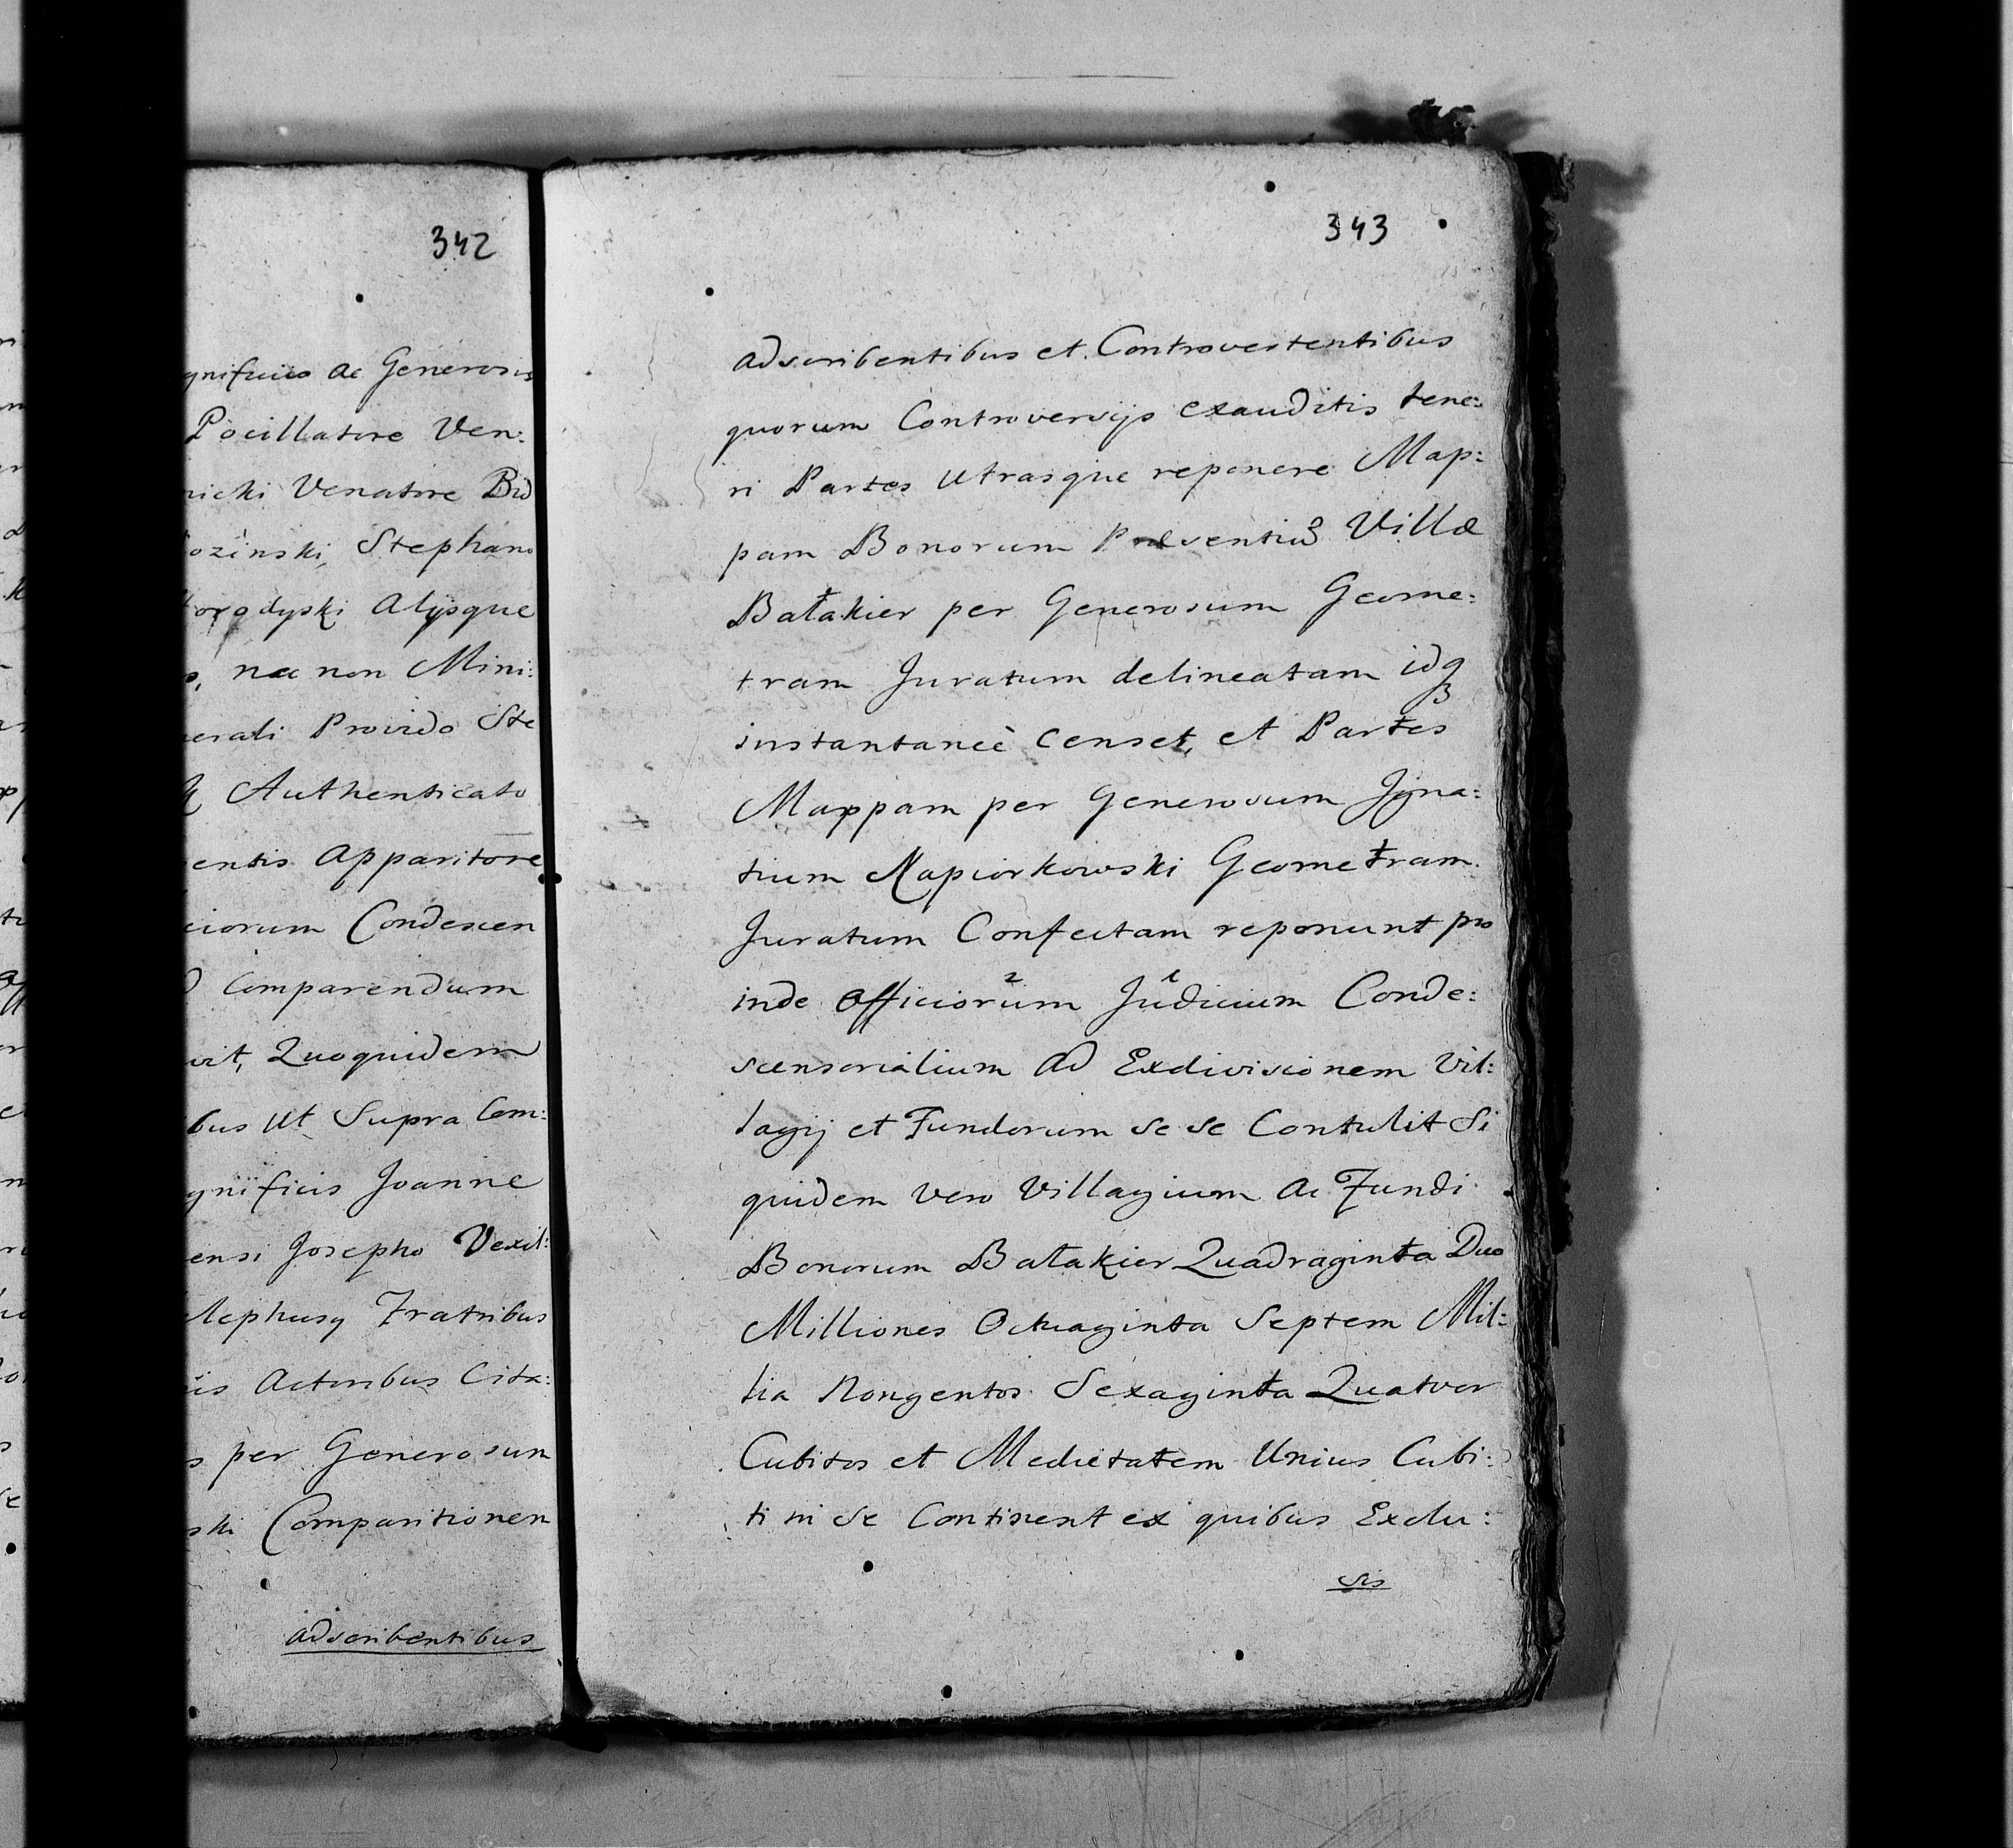 342
gnificis ac Generosis
Pocillatore Ven:
nicki Venatore Bid
ozinski, Stephano
orodyski Alijsque
nec non Mini:
erali Provido Ste
Authenticato
entis Apparitore
ciorum Condescen
Comparendum
vit, Quoquidem
bus Ut Supra Com:
gnificis Joanne
ensi Josepho Vexil:
Fratribus
is Actoribus Cita:
s per Generosum
ski Comparitionem
adscribentibus
343
adscribentibus et Controvertentibus
quorum Controversijs exauditis tene:
ri Partes Utrasque reponere Map:
pam Bonorum Præsentiu3 Villæ
Batakier per Generosum Geome:
tram Juratum delineatam idq3
instantaneè Censet, et Partes
Mappam per Generosum Igna:
tium Kapiorkowski Geometram
Juratum Confectam reponunt pro
inde Officiorum Judicium Conde:
scensorialium Ad Exdivisionem Vil:
lagij et Fundorum se se Contulit Si
quidem vero Villagium Ac Fundi
Bonorum Batakier Quadraginta Duo
Milliones Octuaginta Septem Mil:
lia Nongentos Sexaginta Quatvor
Cubitos et Medietatem Unius Cubi:
ti in se Continent ex quibus Exclu:
sis